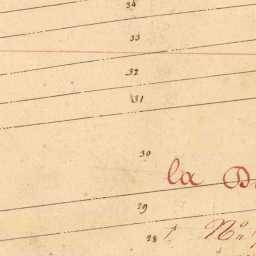 34
33
32
31
30
la
29
28